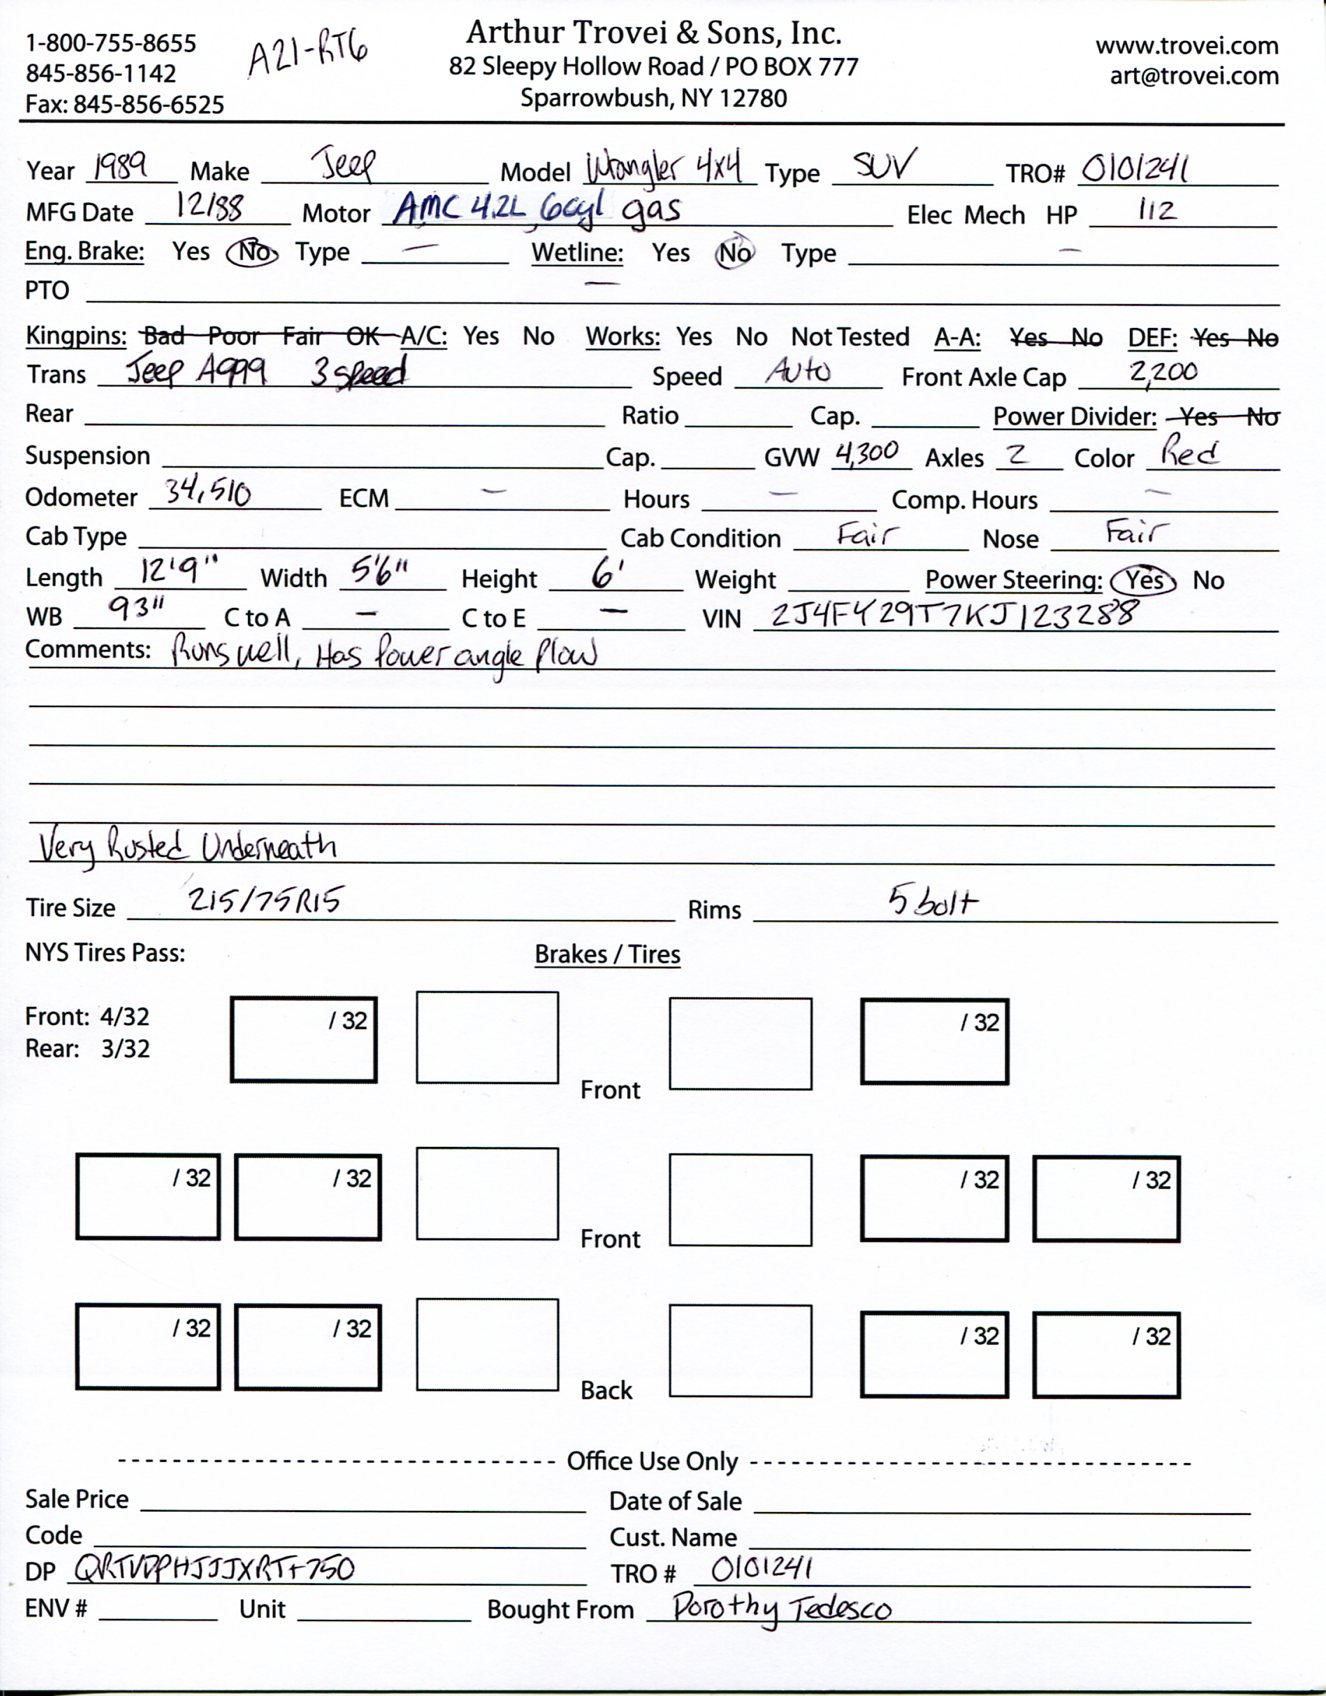 1-800-755-8655 A21-RT6 Arthur Trovei & Sons, Inc. www.trovei.com
845-856-1142 82 Sleepy Hollow Road / PO BOX 777 art@trovei.com
Fax: 845-856-6525 Sparrowbush, NY 12780
Year 1989 Make Jeep Model Wrangler 4x4 Type SUV TRO# 0101241
MFG Date 12/88 Motor AMC 4.2L, 6cyl gas Elec Mech HP 112
Eng. Brake: Yes No Type — Wetline: Yes No Type —
PTO —
Kingpins: Bad Poor Fair OK A/C: Yes No Works: Yes No Not Tested A-A: Yes No DEF: Yes No
Trans Jeep A999 3 speed Speed Auto Front Axle Cap 2,200
Rear Ratio Cap. Power Divider: Yes No
Suspension Cap. GVW 4,300 Axles 2 Color Red
Odometer 34,510 ECM — Hours — Comp. Hours —
Cab Type Cab Condition Fair Nose Fair
Length 12'9" Width 5'6" Height 6' Weight Power Steering: Yes No
WB 93" C to A — C to E — VIN 2J4FY29T7KJ123288
Comments: Runs well, Has Power angle Plow
Very Rusted Underneath
Tire Size 215/75R15 Rims 5 bolt
NYS Tires Pass: Brakes / Tires
Front: 4/32 / 32 / 32
Rear: 3/32
Front
/ 32 / 32 / 32 / 32
Front
/ 32 / 32 / 32 / 32
Back
Office Use Only
Sale Price Date of Sale
Code Cust. Name
DP QRTVDPHJJJXRT+750 TRO # 0101241
ENV # Unit Bought From Dorothy Tedesco